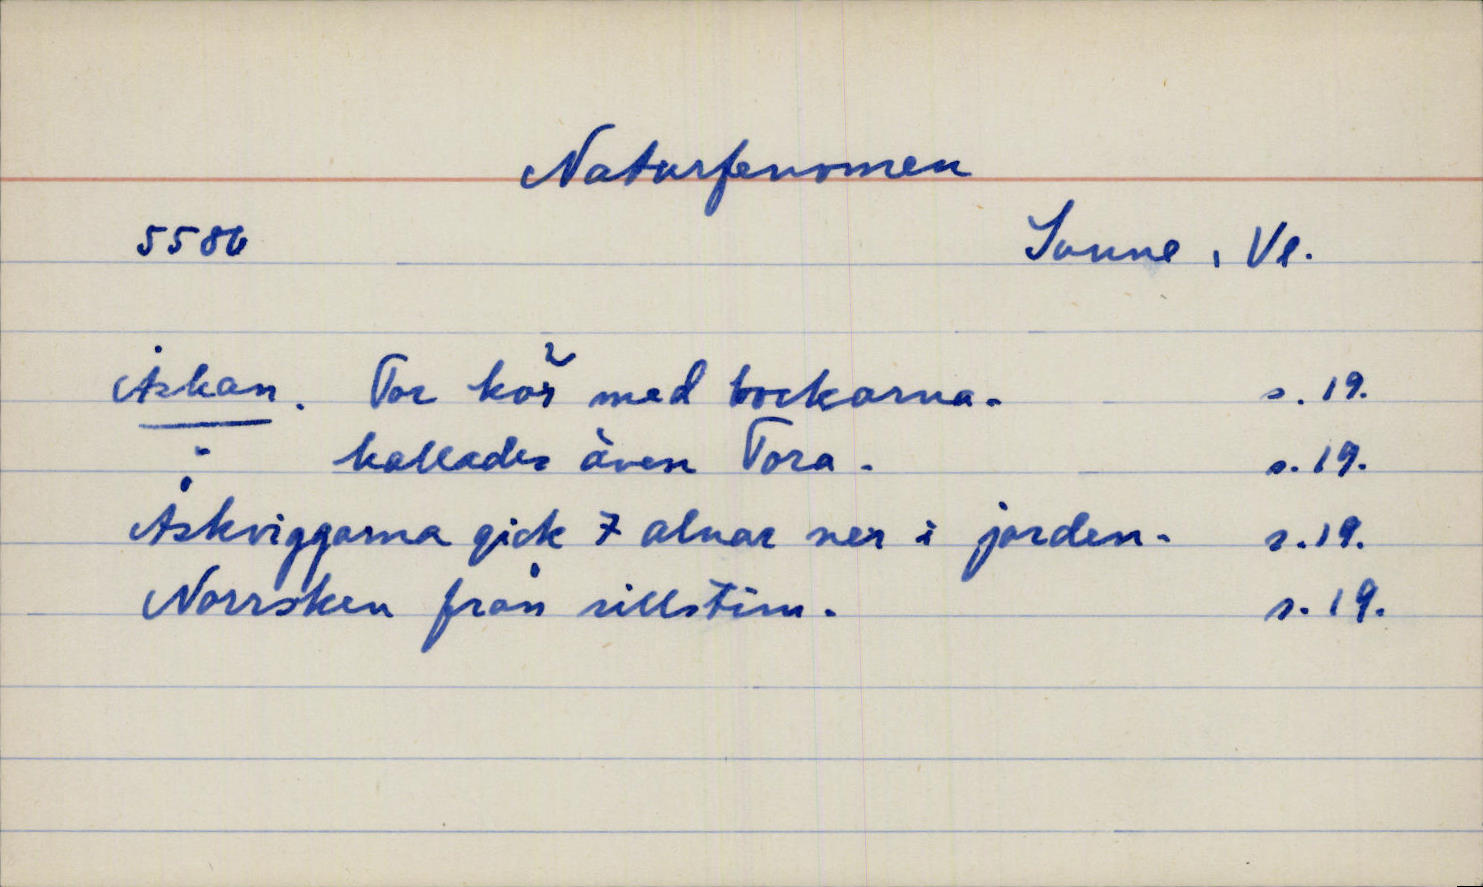 Naturfenomen
5586 Sunne, Vl.
Åskan. Tor kör med bockarna. s. 19.
" kallades även Tora. s. 19.
Åskviggarna gick 7 alnar ner i jorden. s. 19.
Norrsken från sillstim. s. 19.